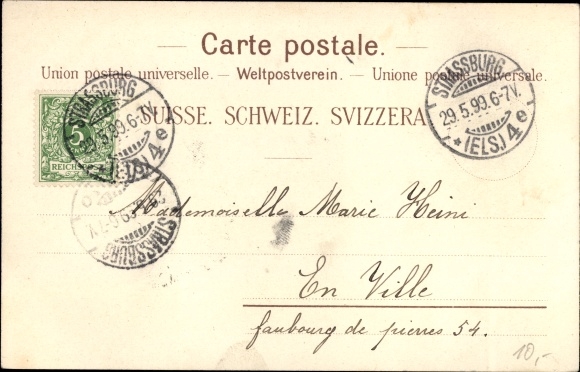 Carte postale.
Union postale universelle. — Weltpostverein. — Unione postale universale.
SUISSE. SCHWEIZ. SVIZZERA
STRASSBURG
29.5.99.6-7V.
* (ELS.) 4e
STRASSBURG
29.5.99.6-7V.
* (ELS.) 4e
5
REICHSPOST
STRASSBURG
Mademoiselle Marie Heini
En Ville
faubourg de pierres 54.
10,-